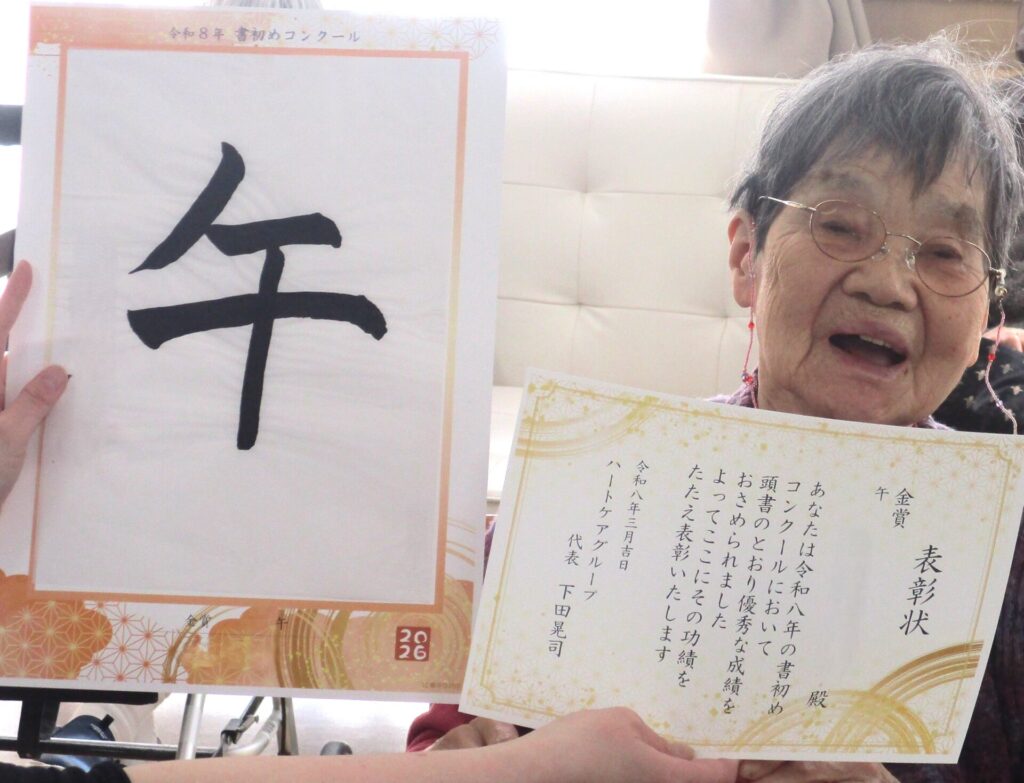 令和8年 書初めコンクール
午
金賞 午
2026
表彰状
金賞
午
殿
あなたは令和八年の書初め
コンクールにおいて
頭書のとおり優秀な成績を
おさめられました
よってここにその功績を
たたえ表彰いたします
令和八年三月吉日
ハートケアグループ
代表 下田晃司